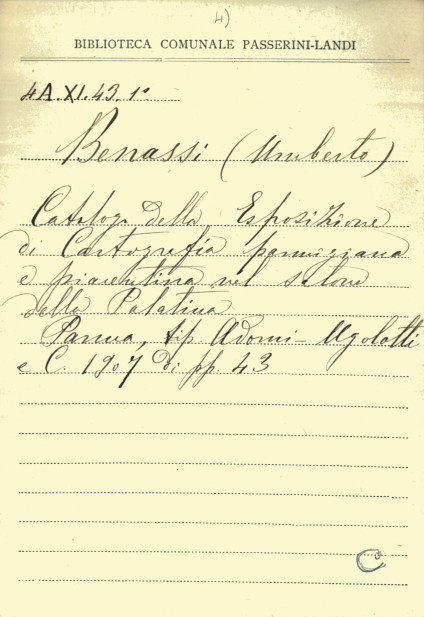 4)
BIBLIOTECA COMUNALE PASSERINI-LANDI
4A.XI.43.1º
Benassi (Umberto)
Catalogo della Esposizione
di Cartografia parmigiana
e piacentina nel salone
della Palatina
Parma, tip Adorni-Ugolotti
e C. 1907 di pp. 43
C